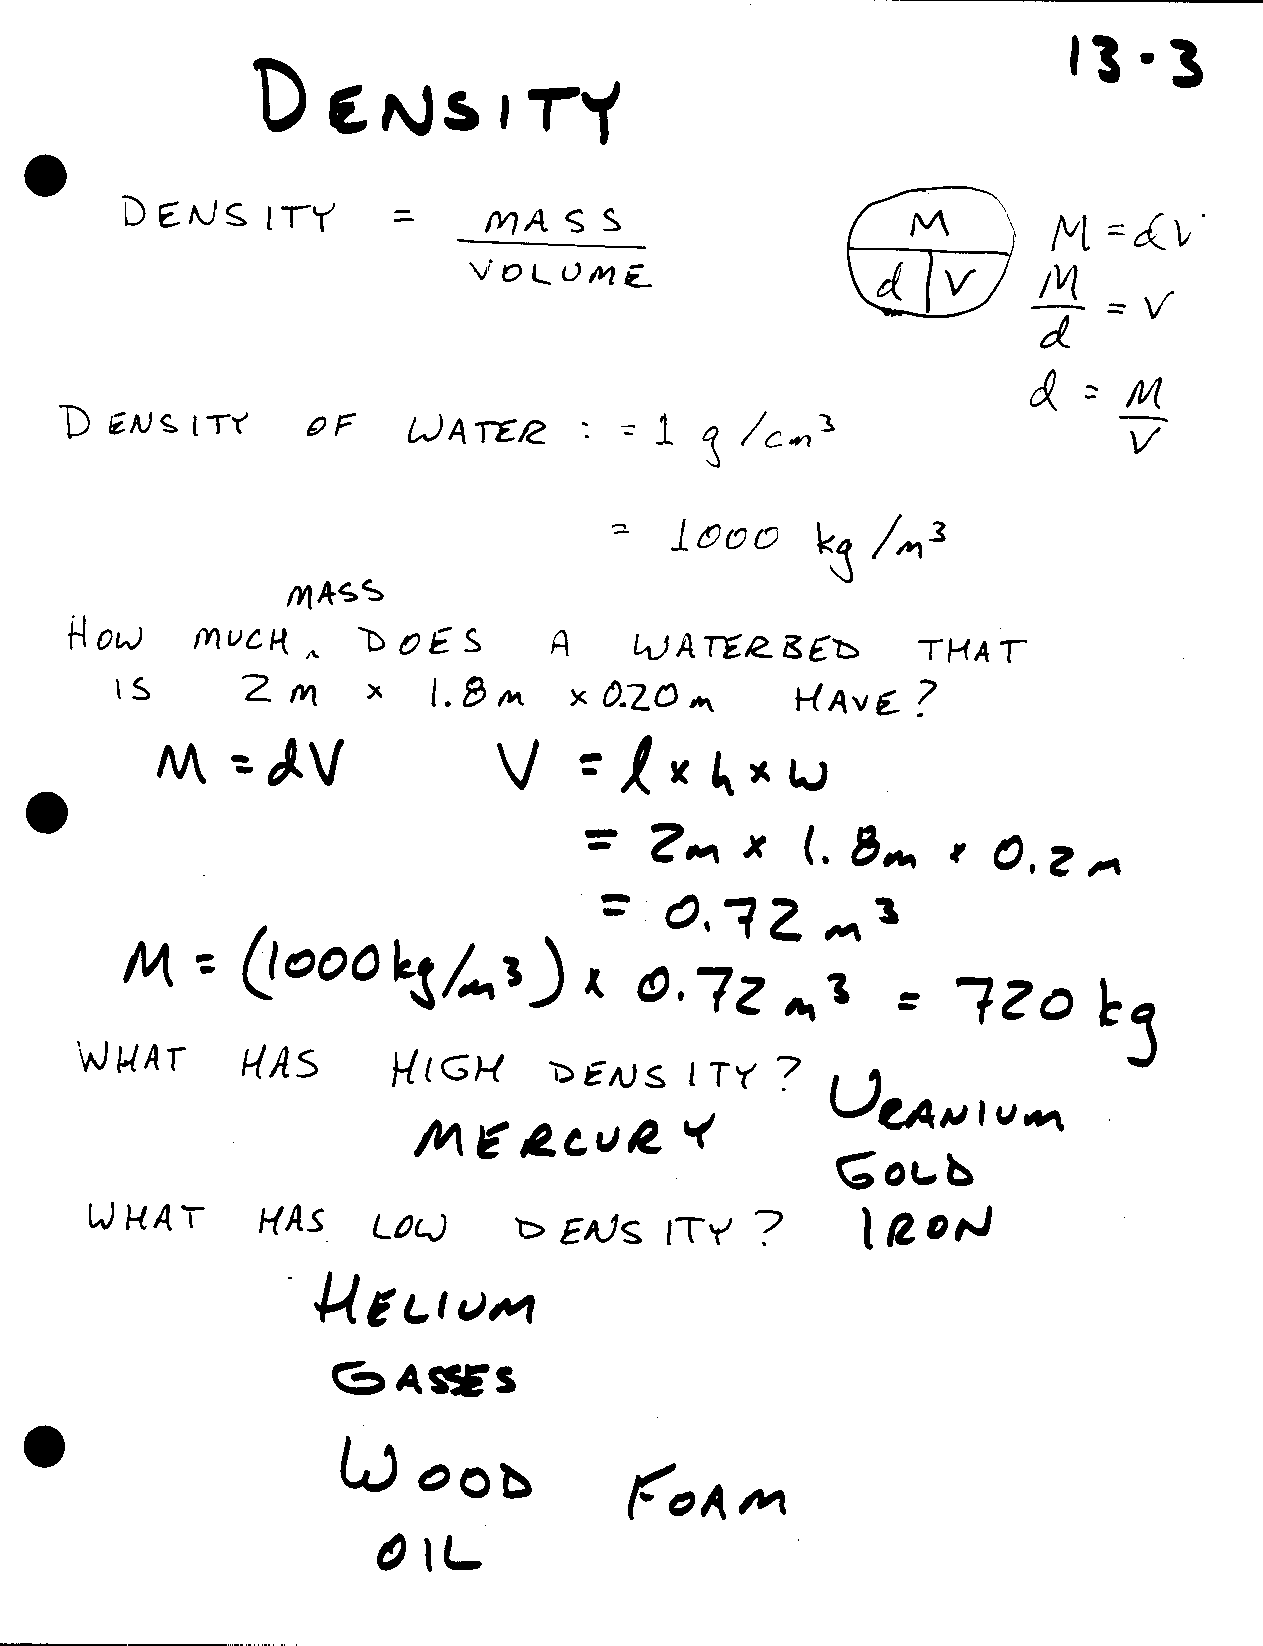 13.3
DENSITY
DENSITY = MASS / VOLUME
M
d | V
M = dV
M/d = V
d = M/V
DENSITY OF WATER : = 1 g/cm³
= 1000 kg/m³
MASS
HOW MUCH ‸ DOES A WATERBED THAT
IS 2 m x 1.8 m x 0.20 m HAVE?
M = dV V = l x h x w
= 2m x 1.8m x 0.2m
= 0.72 m³
M = (1000 kg/m³) x 0.72 m³ = 720 kg
WHAT HAS HIGH DENSITY?
MERCURY URANIUM
GOLD
IRON
WHAT HAS LOW DENSITY?
HELIUM
GASSES
WOOD FOAM
OIL